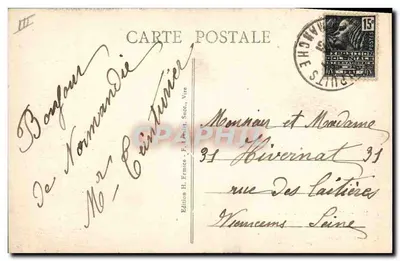 III
CARTE POSTALE
15c
MANCHE
Bonjour
de Normandie
Mr Teinturier
Edition H. Ermice - Vire
Monsieur et Madame
31 Hivernat 31
rue des Laitières
Vincennes Seine